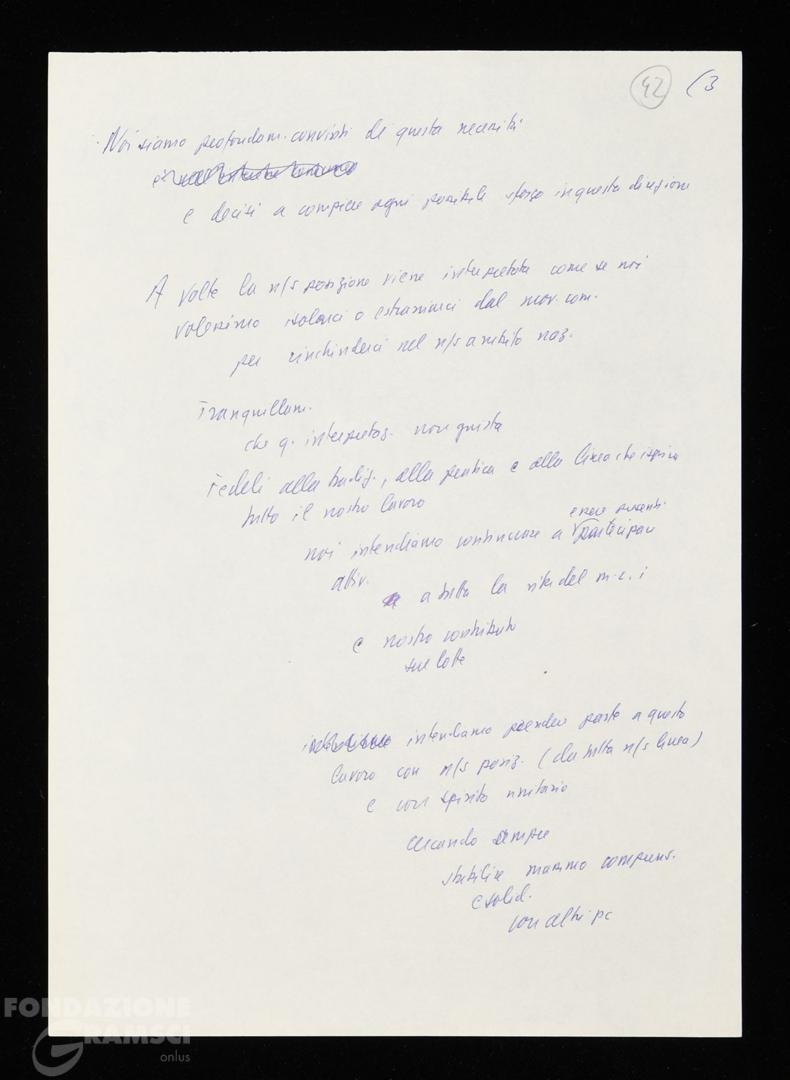 42 (3
Noi siamo profondam. convinti di questa necessità
e decisi a compiere ogni possibile sforzo in questa direzione
A volte la n/s posizione viene interpretata come se noi
volessimo isolarci o estraniarci dal mov. com.
per rinchiuderci nel n/s ambito naz.
Tranquillam.
che q. interpretaz. non giusta
Fedeli alla tradiz., alla pratica e alla linea che ispira
tutto il nostro lavoro
essere presenti
noi intendiamo continuare a partecipare
attiv.
a tutta la vita del m. c. i
e nostro contributo
sue lotte
intendiamo prendere parte a questo
lavoro con n/s posiz. (da tutta n/s linea)
e con spirito unitario
cercando sempre
stabilire massimo comprens.
e solid.
con altri pc
FONDAZIONE
GRAMSCI
onlus